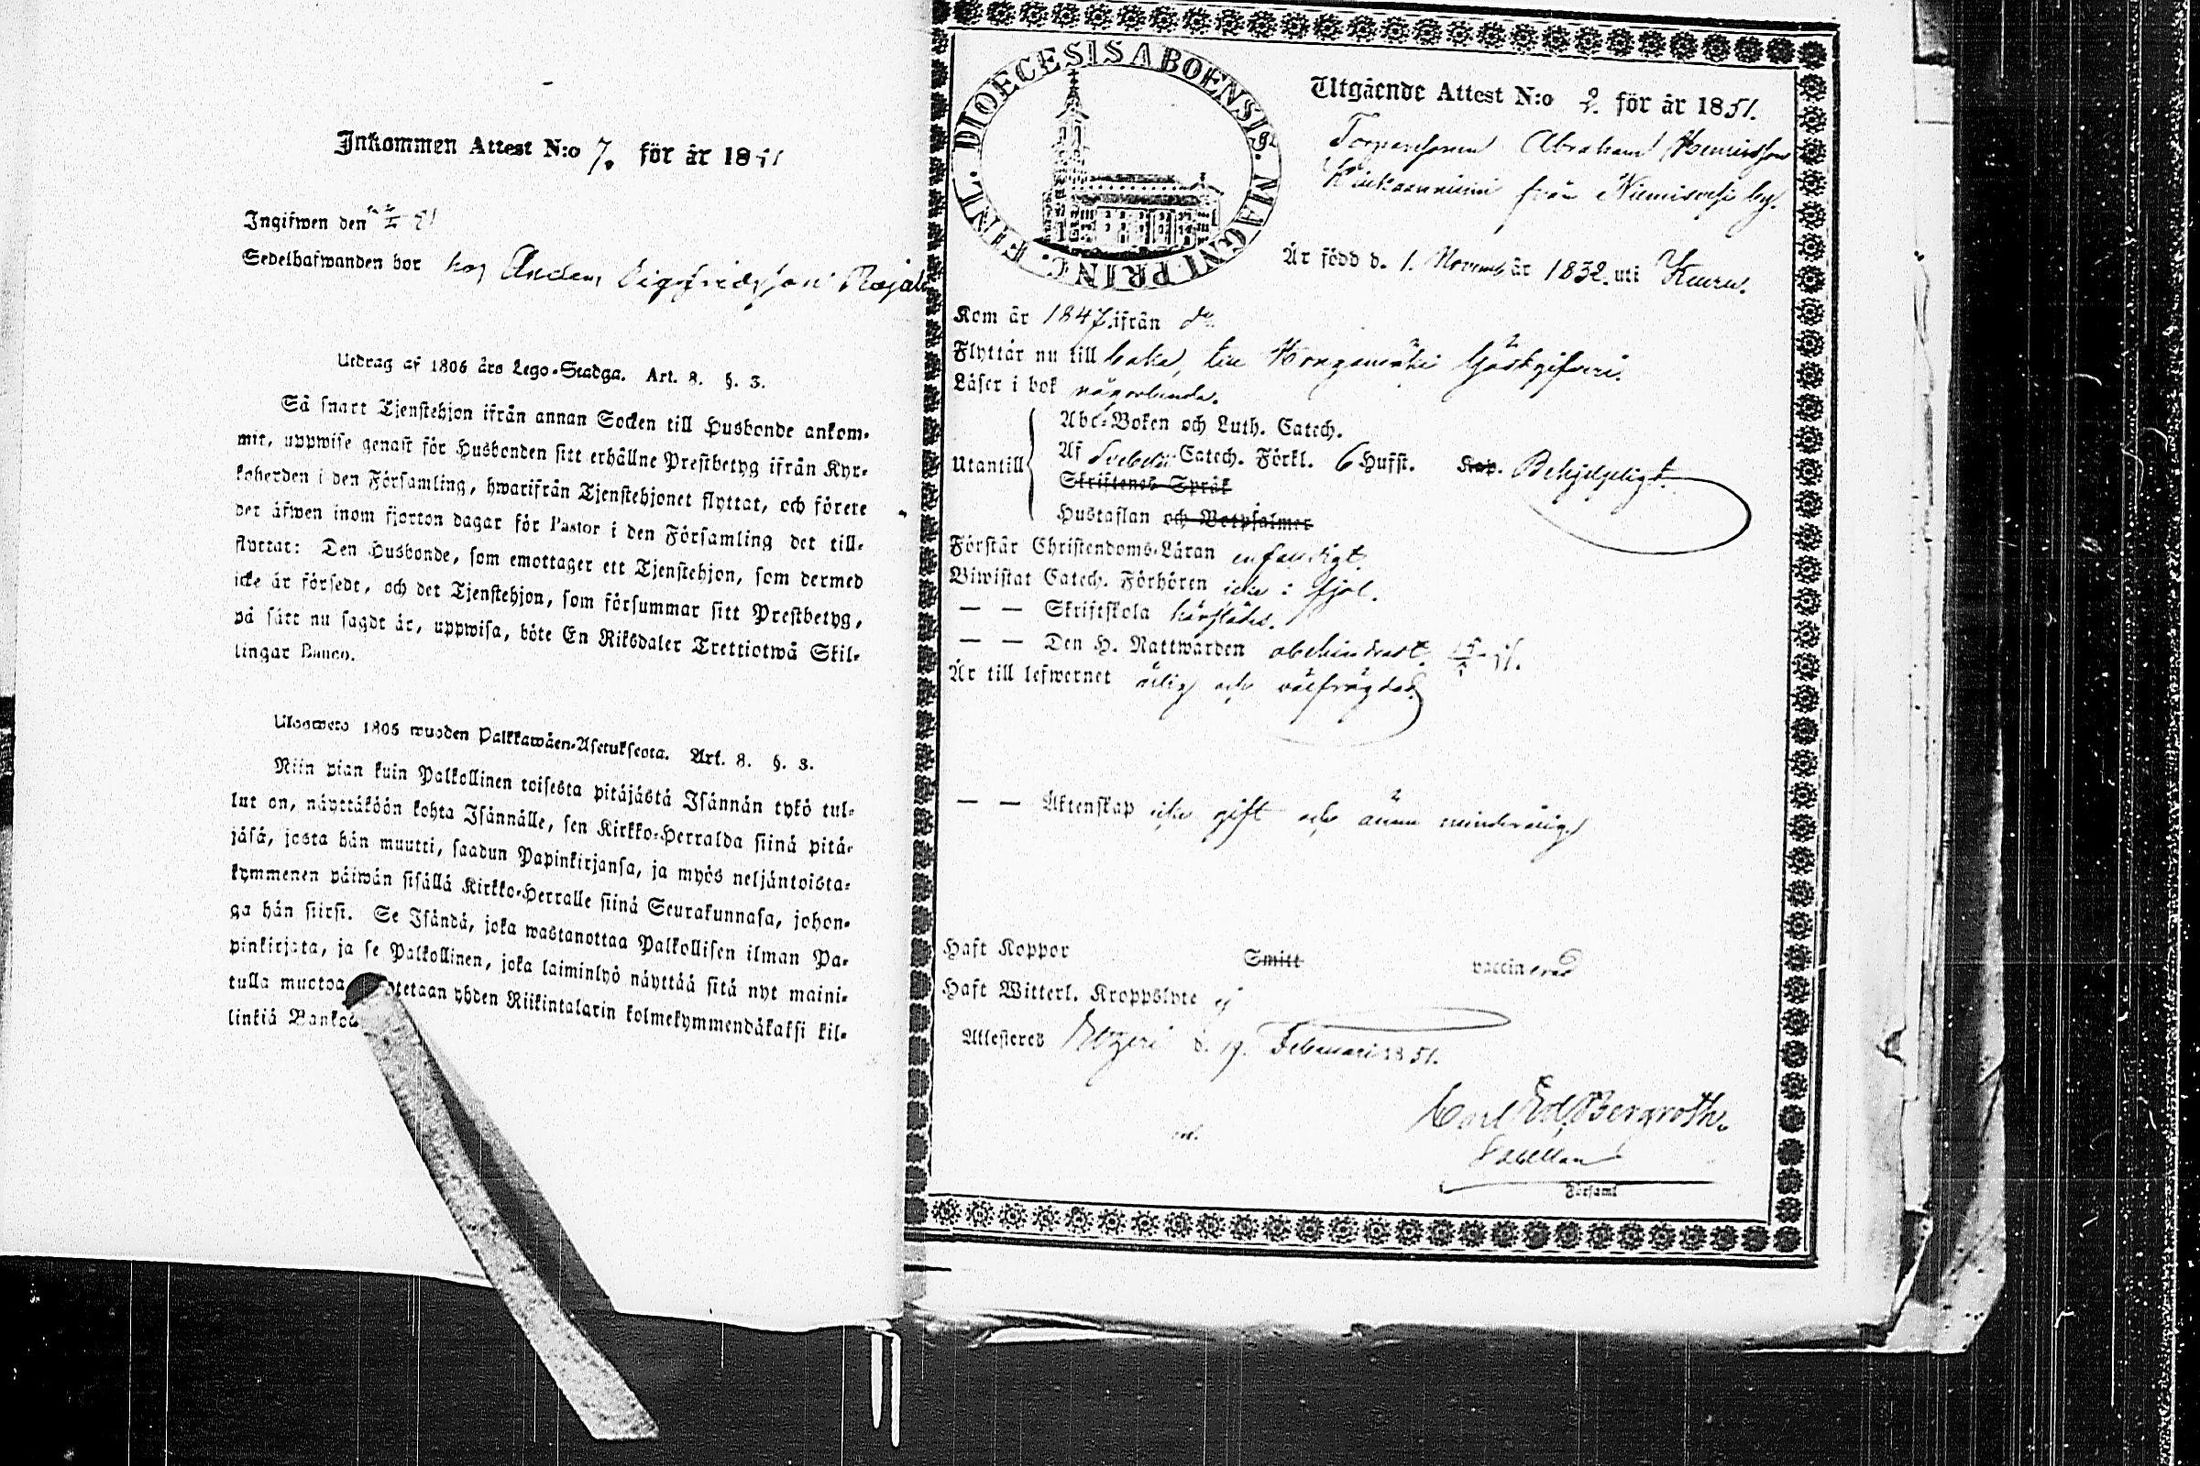 Inkommen Attest N:o 7. för år 1851
Ingifwen den
Sedelhafwanden bor hos Anders Sigfridsson
Utdrag af 1805 års Lego-Stadga. Art. 8. §. 3.
Så snart Tjenstehjon ifrån annan Socken till Husbonde ankom-
mit, uppwise genast för Husbonden sitt erhållne Prestbetyg ifrån Kyr-
koherden i den Församling, hwarifrån Tjenstehjonet flyttat, och förete
det äfwen inom fjorton dagar för Pastor i den Församling det till-
flyttat: Den Husbonde, som emottager ett Tjenstehjon, som dermed
icke är försedt, och det Tjenstehjon, som försummar sitt Prestbetyg,
på sätt nu sagdt är, uppwisa, böte En Riksdaler Trettiotwå Skil-
lingar Banco.
Ulosweto 1805 wuoden Palkkawäen-Asetuksesta. Art. 8. §. 3.
Niin pian kuin Palkollinen toisesta pitäjästä Isännän tykö tul-
lut on, näyttäköön kohta Isännälle, sen Kirkko-Herralda siinä pitä-
jäsä, josta hän muutti, saadun Papinkirjansa, ja myös neljäntoista-
kymmenen päiwän sisällä Kirkko-Herralle siinä Seurakunnasa, johon-
ga hän siirsi. Se Isändä, joka wastanottaa Palkollisen ilman Pa-
pinkirjata, ja se Palkollinen, joka laiminlyö näyttää sitä nyt maini-
tulla muotoa otetaan yhden Riikintalarin kolmekymmendäkaksi kil-
linkiä Banko
DIOECESIS ABOENSIS. MAGNI PRINC. FINL.
Utgående Attest N:o 2. för år 1851.
Torparesonen Abraham Henriksson
från Niemisvesi by.
Är född d. 1. Novemb. år 1832. uti Kuru.
Kom år 1847. ifrån do
Flyttar nu till baka, till Kongsmäki Gästgifveri.
Läser i bok någorlunda.
Utantill
Abc-Boken och Luth. Catech.
Af Svebelii Catech. Förkl. 6 Hufst. Kap. Behjelpeligt.
Skriftenes Språk
Hustaflan och Botpsalmer
Förstår Christendoms-Läran enfaldigt.
Biwistat Catech. Förhören icke i fjol.
— — Skriftskola härstädes.
— — Den H. Nattwarden obehindradt.
Är till lefwernet ärlig och välfrägdad.
— — Äktenskap icke gift och ännu minderårig
Haft Koppor Smitt vaccinerad
Haft Witterl. Kroppslyte ej
Attesteres Etzeri d. 19. Februari 1851.
Carl Ed. Bergroth.
Capellan
Församl